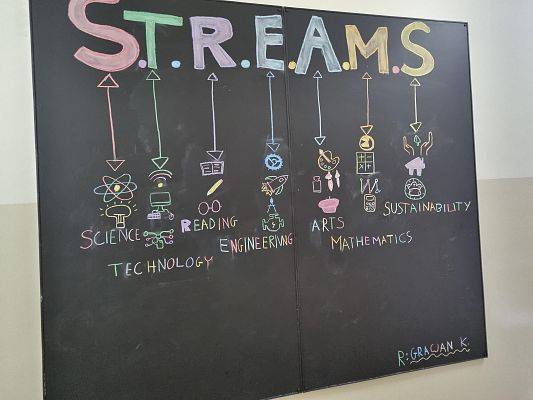 S.T.R.E.A.M.S
SCIENCE
TECHNOLOGY
READING
ENGINEERIVNG
ARTS
MATHEMATICS
SUSTAINABILITY